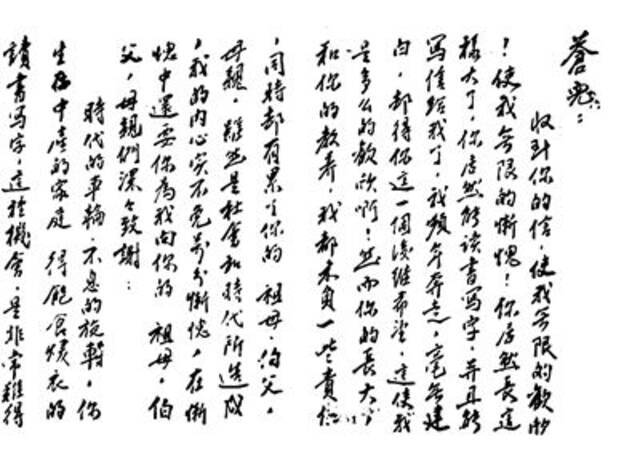 蒼兒:
收到你的信，使我无限的歡欣
！使我无限的慚愧！你居然長這
樣大了，你居然能读書写字，并且能
写信給我了，我頻年奔走，毫无建
白，却得你這一個後继希望，這使我
是多么的歡欣啊！然而你的長大，
和你的教养，我都未負一些責任
，同時却有累了你的 祖母，伯父，
母親，雖然是社會和時代所造成
，我的內心实不免万分慚愧，在慚
愧中還要你為我向你的 祖母，伯
父，母親們深々致謝：
時代的車輪，不息的旋轉，你
生在中產的家庭 得飽食煖衣的
讀書写字，這種機會，是非常難得